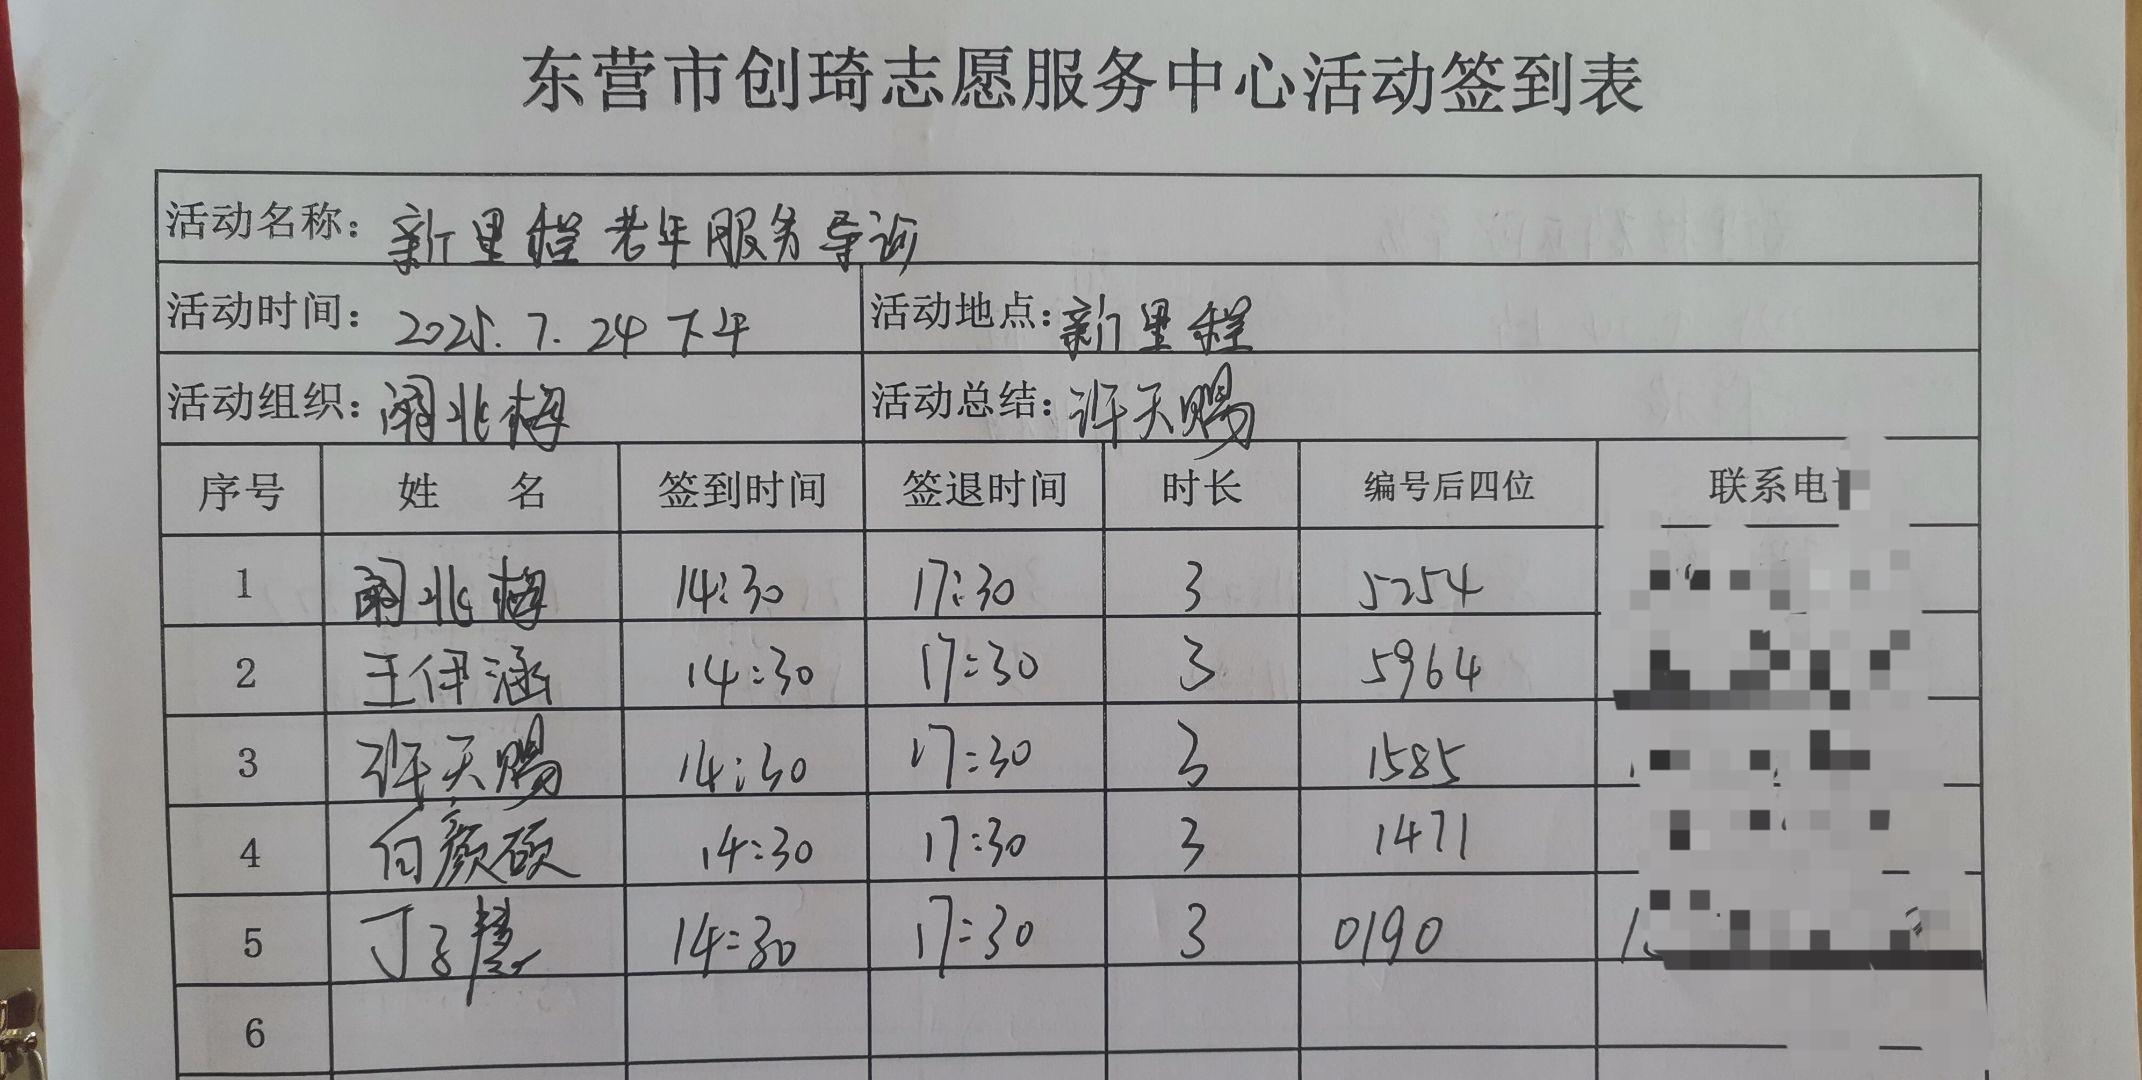 东营市创琦志愿服务中心活动签到表
活动名称：新里程老年服务导诊
活动时间：2025.7.24下午 活动地点：新里程
活动组织：闵兆梅 活动总结：许天赐
序号 姓名 签到时间 签退时间 时长 编号后四位 联系电
1 兆梅 14:30 17:30 3 5254
2 王伊涵 14:30 17:30 3 5964
3 许天赐 14:30 17:30 3 1585
4 颜硕 14:30 17:30 3 1471
5 丁子慧 14:30 17:30 3 0190
6